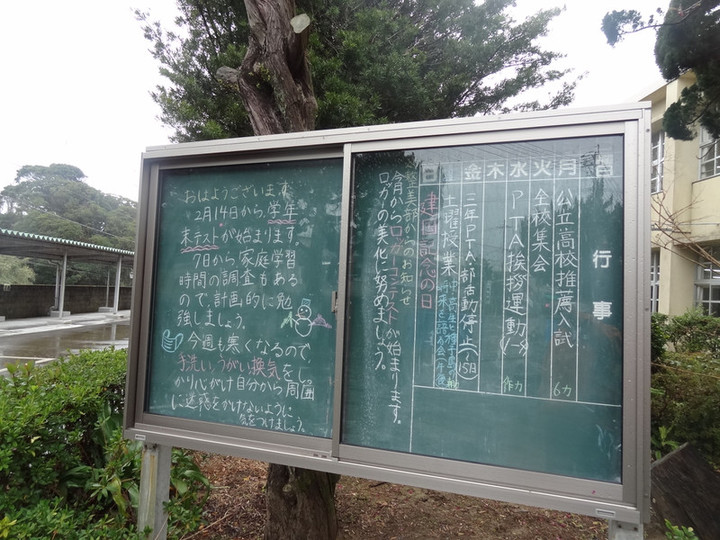 おはようございます。
2月14日から学年
末テストが始まります。
7日から家庭学習
時間の調査もある
ので、計画的に勉
強しましょう。
今週も寒くなるので
手洗い、うがい、換気をし
かり心がけ自分から周囲
に迷惑をかけないように
気をつけましょう。
行事
月 公立高校推薦入試 6カ
火 全校集会
水 PTA挨拶運動 作カ
木
金 三年PTA・部活動停止(~15日)
土曜授業
日 建国記念の日
整美部からのお知らせ
今月からロッカーコンテストが始まります。
ロッカーの美化に努めましょう。